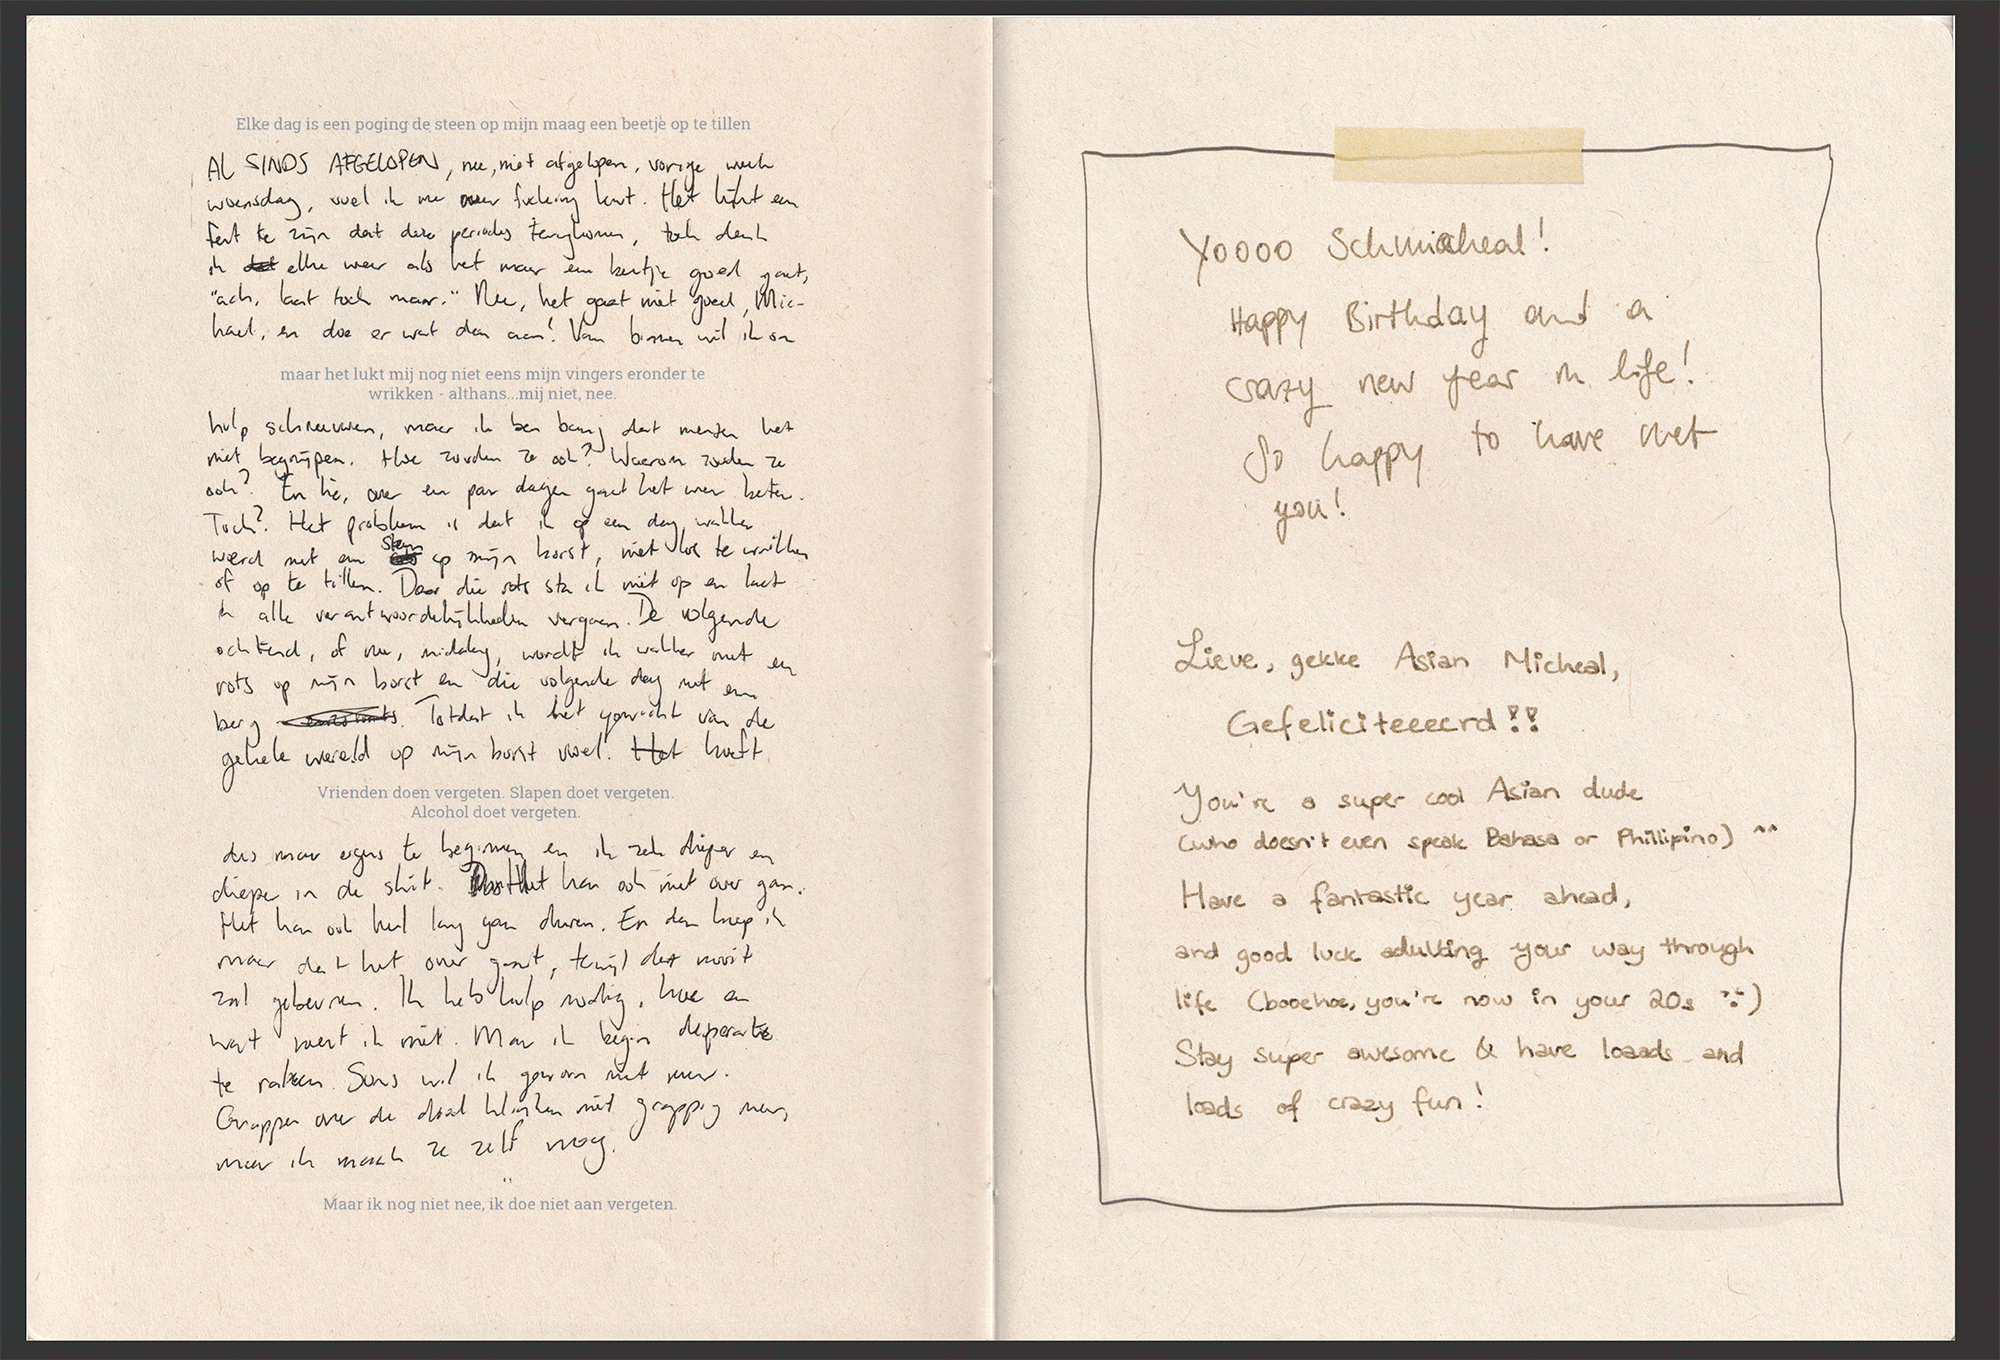 Elke dag is een poging de steen op mijn maag een beetje op te tillen
AL SINDS AFGELOPEN, nee, niet afgelopen, vorige week
woensdag, voel ik me fucking kut. Het lijkt een
feit te zijn dat deze periodes terugkomen, toch denk
ik elke weer als het maar een beetje goed gaat,
"ach, laat toch maar." Nee, het gaat niet goed, Mic-
hael, en doe er wat dan aan! Van binnen wil ik om
maar het lukt mij nog niet eens mijn vingers eronder te
wrikken - althans...mij niet, nee.
hulp schreeuwen, maar ik ben bang dat mensen het
niet begrijpen. Hoe zouden ze ook? Waarom zouden ze
ook? En hé, over een paar dagen gaat het weer beter.
Toch? Het probleem is dat ik op een dag wakker
word met een steen op mijn borst, niet los te wrikken
of op te tillen. Door die rots sta ik niet op en laat
ik alle verantwoordelijkheden vergaan. De volgende
ochtend, of nee, middag, wordt ik wakker met een
rots op mijn borst en die volgende dag met een
berg. Totdat ik het gewicht van de
gehele wereld op mijn borst voel. Het hoeft
Vrienden doen vergeten. Slapen doet vergeten.
Alcohol doet vergeten.
dus maar ergens te beginnen en ik zak dieper en
dieper in de shit. Het kan ook niet over gaan.
Het kan ook heel lang gaan duren. En dan hoop ik
maar dat het over gaat, terwijl dat nooit
zal gebeuren. Ik heb hulp nodig, hoe en
wat weet ik niet. Maar ik begin desperate
te raken. Soms wil ik gewoon niet meer.
Grappen over de dood klinken niet grappig meer,
maar ik maak ze zelf nog.
Maar ik nog niet nee, ik doe niet aan vergeten.
Yoooo Schmicheal!
Happy Birthday and a
crazy new year in life!
So happy to have met
you!
Lieve, gekke Asian Micheal,
Gefeliciteeeerd!!
You're a super cool Asian dude
(who doesn't even speak Bahasa or Phillipino) ^^
Have a fantastic year ahead,
and good luck adulting your way through
life (booehoe, you're now in your 20s :')
Stay super awesome & have loaads and
loads of crazy fun!